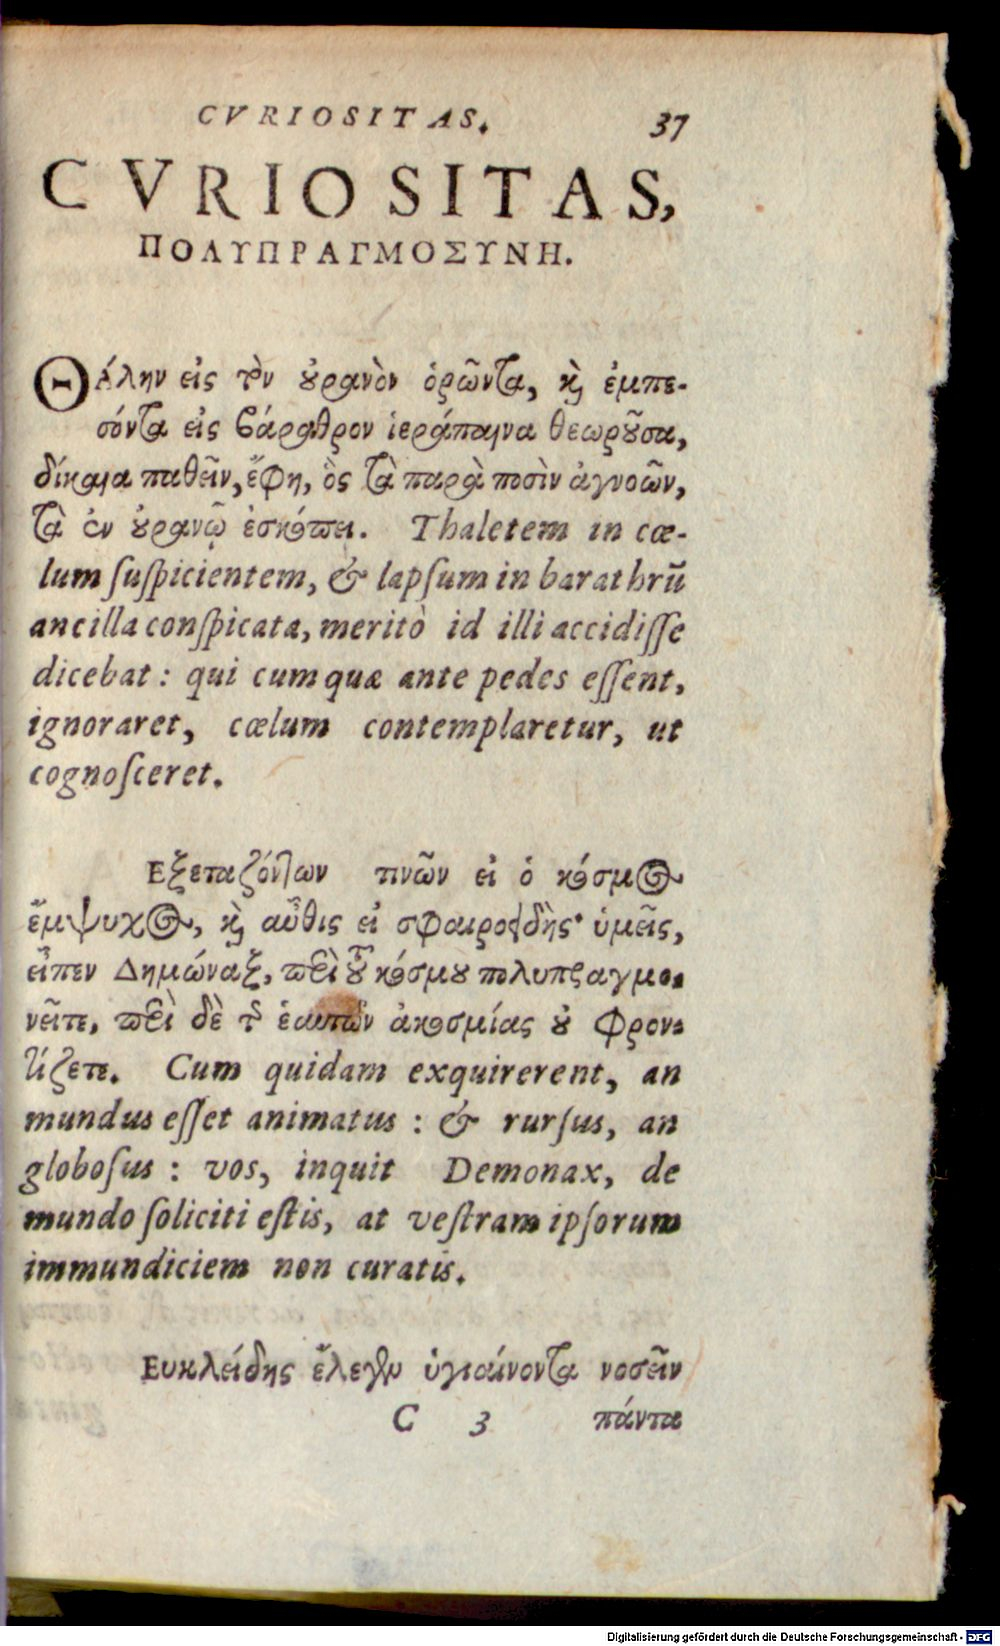 CVRIOSITAS. 37
CVRIOSITAS,
ΠΟΛΥΠΡΑΓΜΟΣΥΝΗ.
Θάλην εἰς τὸν οὐρανὸν ὁρῶντα, καὶ ἐμπε-
σόντα εἰς βάραθρον ἱεράπαινα θεωροῦσα,
δίκαια παθεῖν, ἔφη, ὃς τὰ παρὰ ποσὶν ἀγνοῶν,
τὰ ἐν οὐρανῷ ἐσκόπει. Thaletem in cœ-
lum ſuſpicientem, & lapſum in barathrū
ancilla conſpicata, meritò id illi accidiſſe
dicebat: qui cum quæ ante pedes eſſent,
ignoraret, cœlum contemplaretur, ut
cognoſceret.
Εξεταζόντων τινῶν εἰ ὁ κόσμος
ἔμψυχος, καὶ αὖθις εἰ σφαιροειδὴς· ὑμεῖς,
εἶπεν Δημώναξ, περὶ τοῦ κόσμου πολυπραγμο-
νεῖτε, περὶ δὲ τῆς ἑαυτῶν ἀκοσμίας οὐ φρον-
τίζετε. Cum quidam exquirerent, an
mundus eſſet animatus: & rurſus, an
globoſus: vos, inquit Demonax, de
mundo ſoliciti eſtis, at veſtram ipſorum
immundiciem non curatis.
Ευκλείδης ἔλεγεν ὑγιαίνοντα νοσεῖν
C 3 πάντα
Digitalisierung gefördert durch die Deutsche Forschungsgemeinschaft - DFG